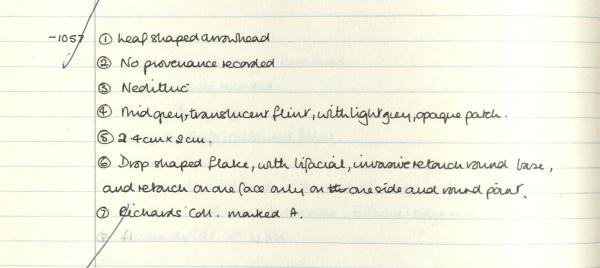 -1057 ① Leaf shaped arrowhead
② No provenance recorded
③ Neolithic
④ Mid grey, translucent flint, with light grey, opaque patch.
⑤ 2.4cm x 2cm.
⑥ Drop shaped flake, with bifacial, invasive retouch round base,
and retouch on one face only on the one side and round point.
⑦ Richards' Coll. marked A.